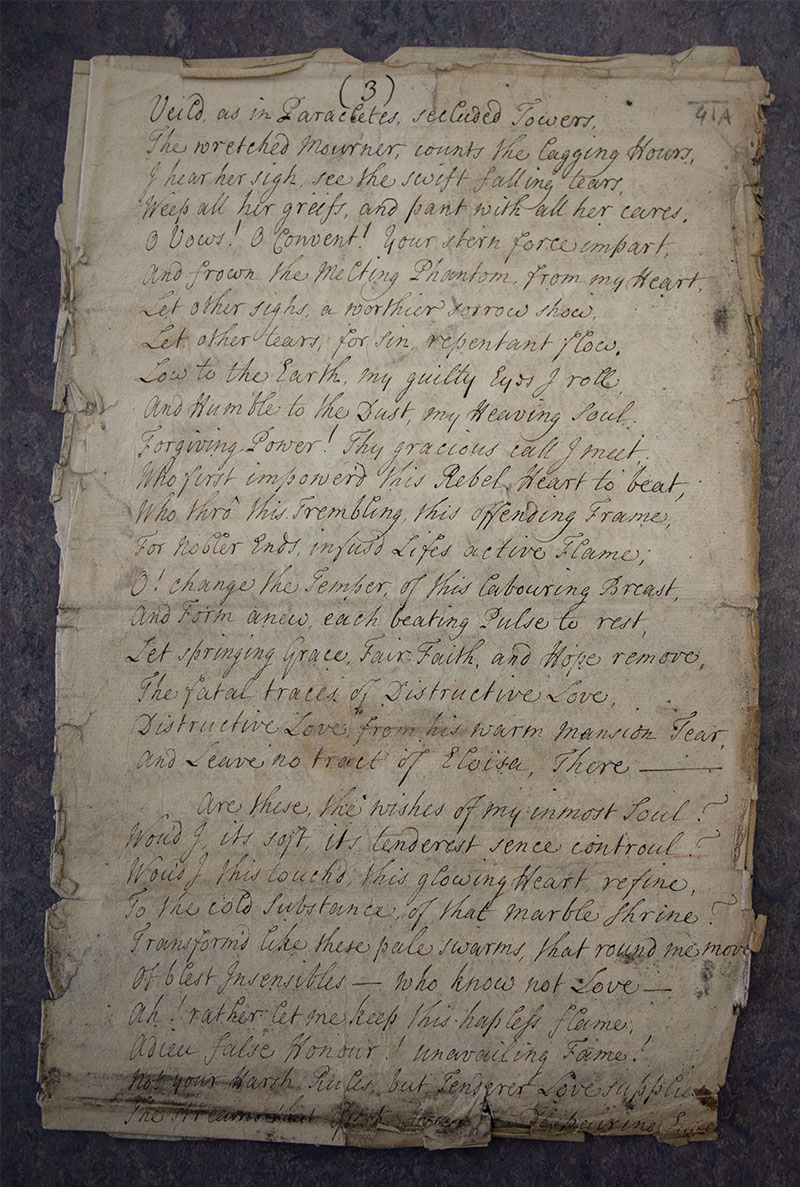 (3)
41A
Veild, as in Paracletes, secluded Towers,
The wretched Mourner, counts the Lagging Hours,
I hear her sigh, see the swift falling tears,
Weep all her greifs, and pant with all her cares.
O Vows! O Convent! Your stern force impart,
And frown the Melting Phantom, from my Heart,
Let other sighs, a worthier sorrow show,
Let other tears, for sin, repentant flow.
Low to the Earth, my guilty Eyes I roll,
And Humble to the Dust, my Heaving Soul.
Forgiving Power! Thy gracious call I meet.
Who first impowerd this Rebel Heart to beat,
Who thro' this Trembling, this offending Frame,
For Nobler Ends, infusd Lifes active Flame,
O! change the Temper, of this Labouring Breast,
And Form anew, each beating Pulse to rest,
Let springing Grace, Fair Faith, and Hope remove,
The fatal traces of Distructive Love,
Distructive Love, from his warm Mansion Tear,
And Leave no tract of Eloisa, There —
Are these, the wishes of my inmost Soul?
Woud I, its soft, its tenderest sence controul?
Woud I, this touchd, this glowing Heart, refine,
To the cold Substance, of that Marble Shrine?
Transformd like these pale swarms, that round me move
Of blest Insensibles — who know not Love —
Ah! rather let me keep this hapless flame,
Adieu false Honour! unavailing Fame!
Not your Harsh Rules, but Tenderer Love supplies
The streams that